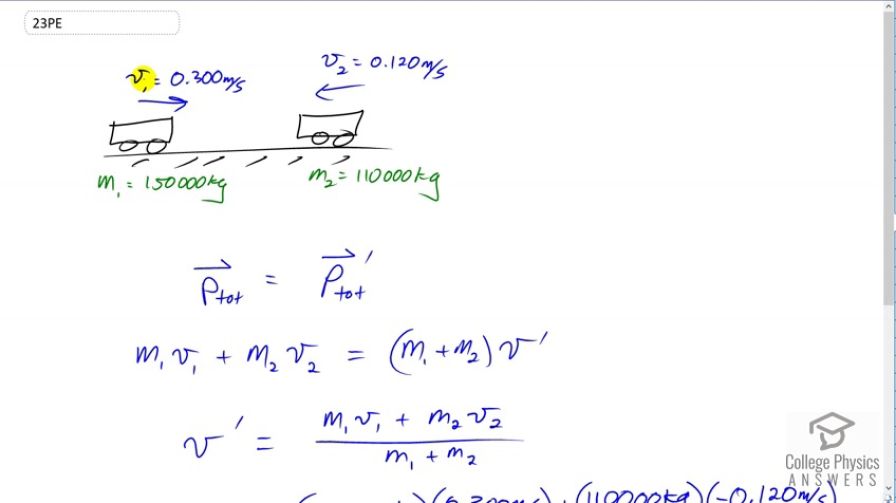 23PE
v₁ = 0.300 m/s
v₂ = 0.120 m/s
m₁ = 150000 kg
m₂ = 110000 kg
P⃗tot = P⃗tot′
m₁v₁ + m₂v₂ = (m₁ + m₂)v′
v′ = (m₁v₁ + m₂v₂) / (m₁ + m₂)
(0.300 m/s) + (110000 kg)(-0.120 m/s)
College Physics
ANSWERS